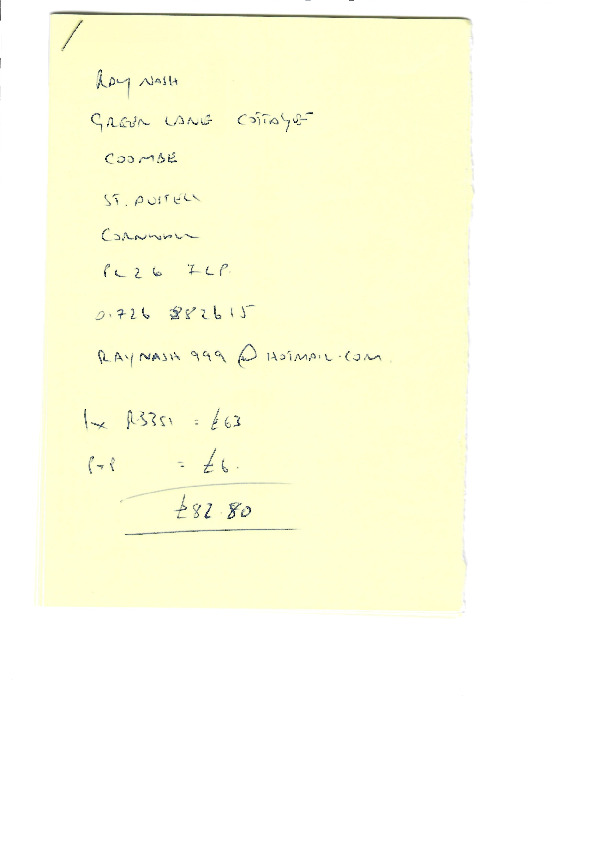 RAY NASH
GREEN LANE COTTAGE
COOMBE
ST. AUSTELL
CORNWALL
PL26 7LP.
01726 882615
RAYNASH999@HOTMAIL.COM.
1x R3351 = £63
P+P = £6.
£82.80